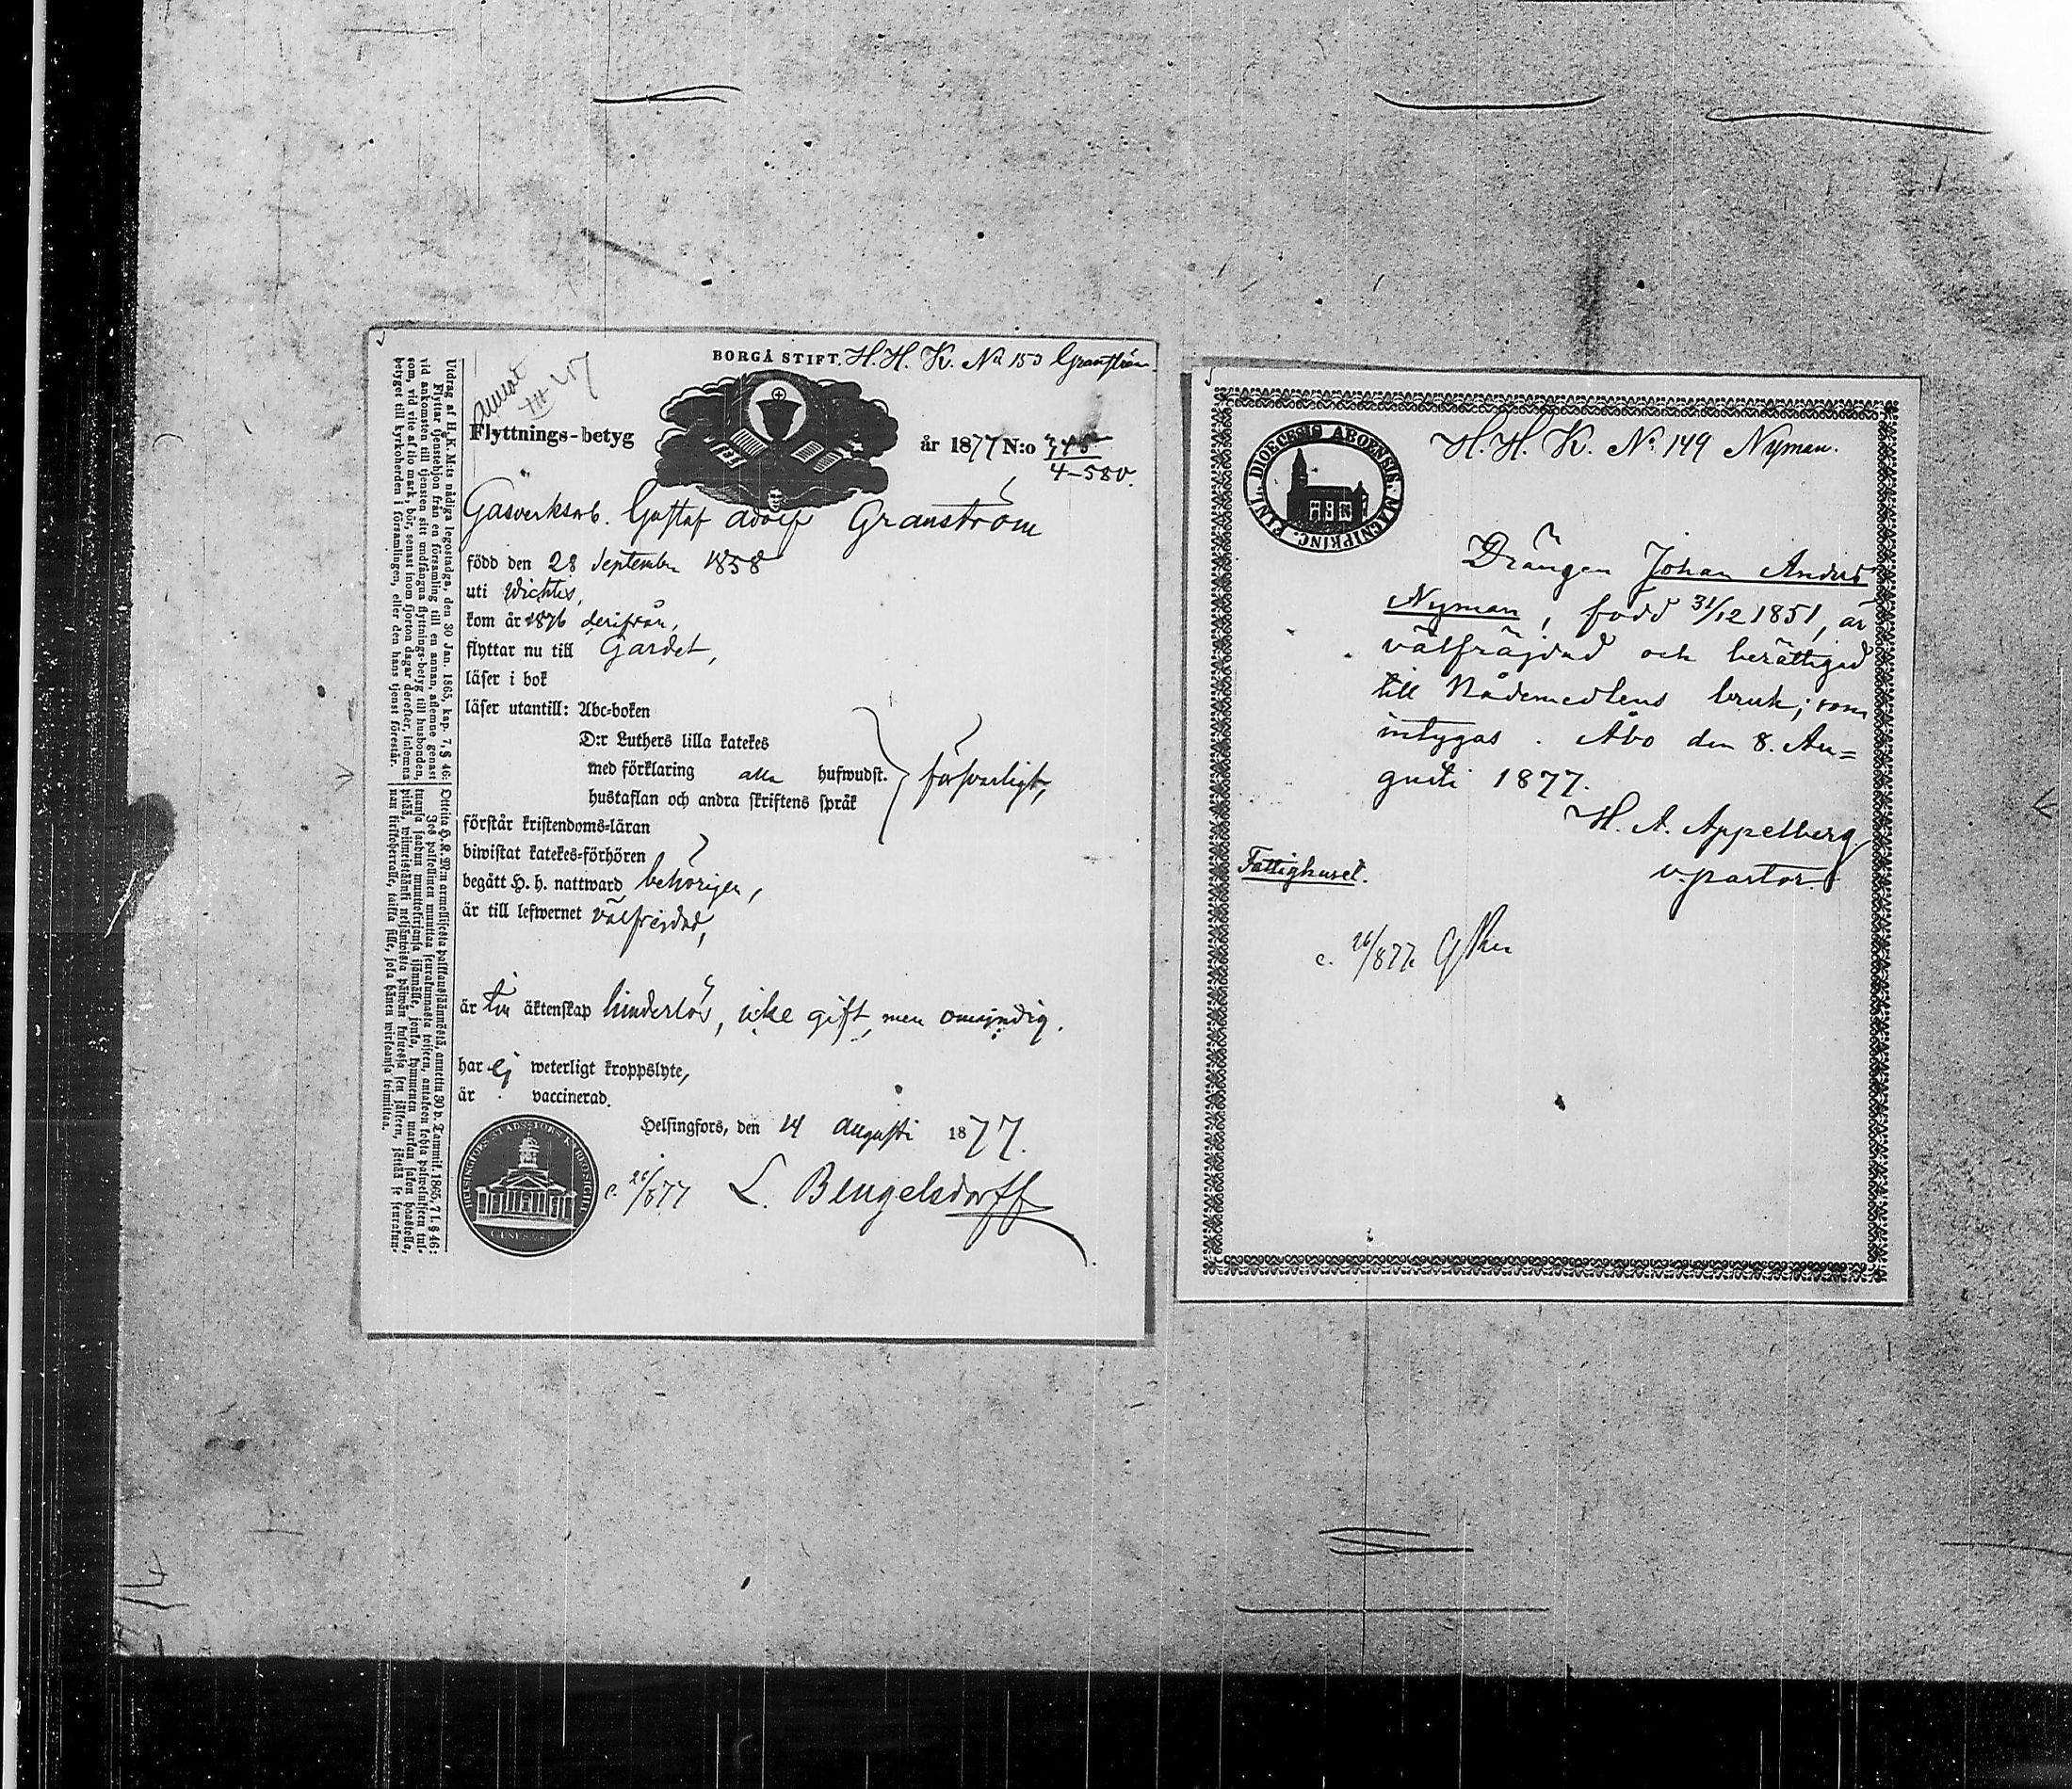 BORGÅ STIFT. H. H. K. No 153 Granström
Flyttnings-betyg
år 1877 N:o
4-580.
Gasverksarb. Gustaf Adolf Granström
född den 28 September 1858
uti Wichtis,
kom år 1876 derifrån,
flyttar nu till Gardet,
läser i bok
läser utantill: Abc-boken
D:r Luthers lilla katekes
med förklaring alla hufwudst.
hustaflan och andra skriftens språk
försvarligt,
förstår kristendoms-läran
biwistat katekes-förhören
begått H. h. nattward behörigen,
är till lefwernet välfrejdad,
är till äktenskap hinderlös, icke gift, men omyndig.
har ej weterligt kroppslyte,
är vaccinerad.
Helsingfors, den 14 Augusti 1877.
c. 26/8 77 L. Bengelsdorff
Utdrag af H. K. M:ts nådiga legostadga, den 30 Jan. 1865, kap. 7, § 46:
Flyttar tjenstehjon från en församling till en annan, aflemne genast
vid ankomsten till tjensten sitt undfångna flyttnings-betyg till husbonden,
som, vid vite af tio mark, bör, senast inom fjorton dagar derefter, inlemna
betyget till kyrkoherden i församlingen, eller den hans tjenst förestår.
DIOECESIS ABOENSIS. MAGNIPRINC. FINL.
H. H. K. No 149 Nyman.
Drängen Johan Anders
Nyman, född 31/12 1851, är
välfräjdad och berättigad
till Nådemedlens bruk; som
intygas. Åbo den 8. Au=
gusti 1877.
H. A. Appelberg
v. pastor.
Fattighuset.
c. 26/8 77.